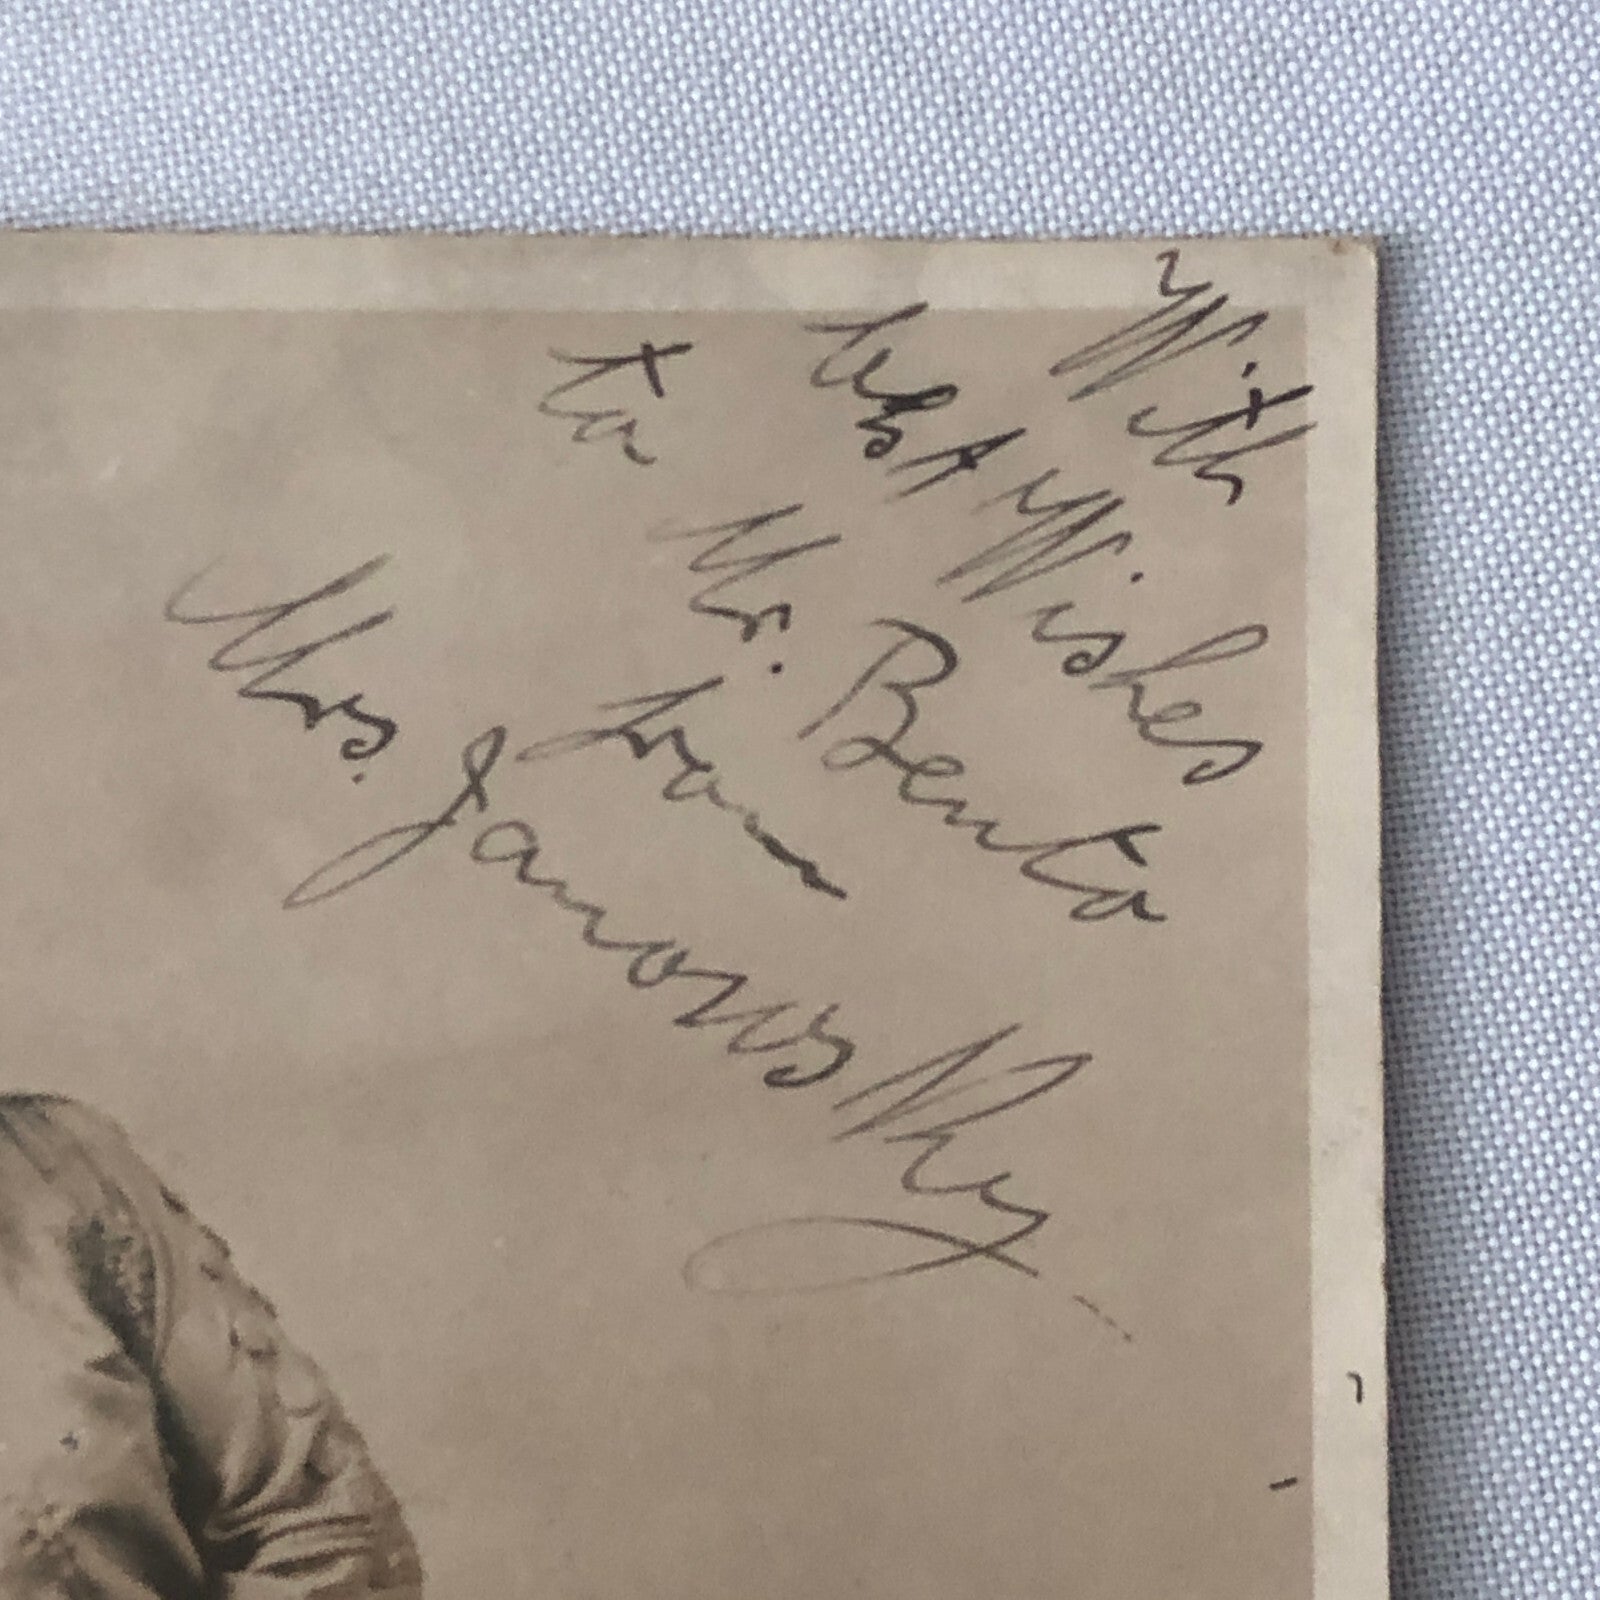 With
best Wishes
to Mr. Benta
from
Mrs. Janowsky